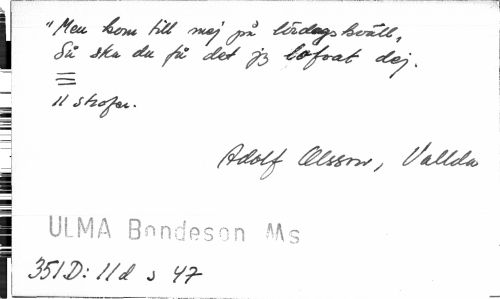 "Men kom till mej på lördagskväll,
Så ska du få det jg lofvat dej.
11 strofer.
Adolf Olsson, Vallda
ULMA Bondeson Ms
351D: 11d s 47